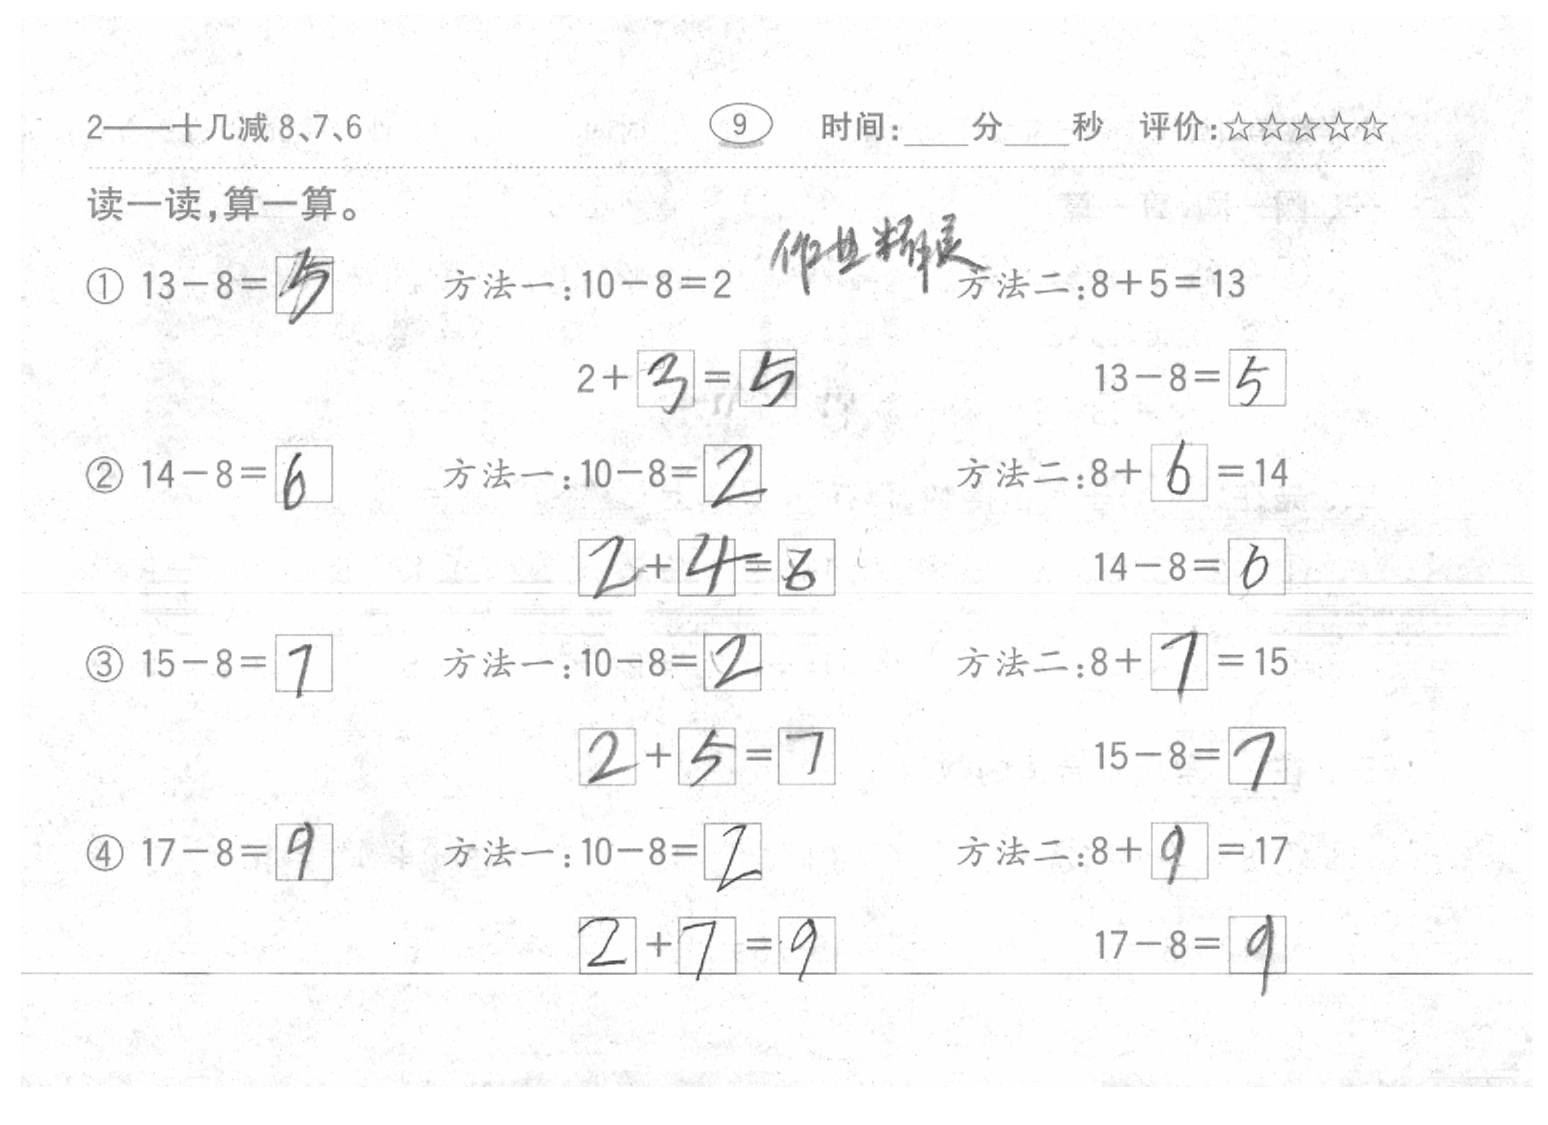 2——十几减8、7、6 9 时间:____分____秒 评价:☆☆☆☆☆
读一读,算一算。
作业精灵
① 13-8=5 方法一:10-8=2 方法二:8+5=13
2+3=5 13-8=5
② 14-8=6 方法一:10-8=2 方法二:8+6=14
2+4=6 14-8=6
③ 15-8=7 方法一:10-8=2 方法二:8+7=15
2+5=7 15-8=7
④ 17-8=9 方法一:10-8=2 方法二:8+9=17
2+7=9 17-8=9